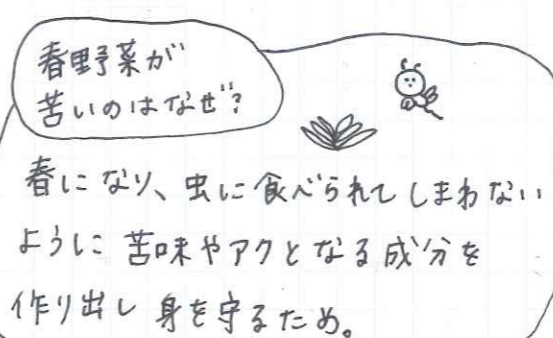 春野菜が
苦いのはなぜ?
春になり、虫に食べられてしまわない
ように苦味やアクとなる成分を
作り出し身を守るため。